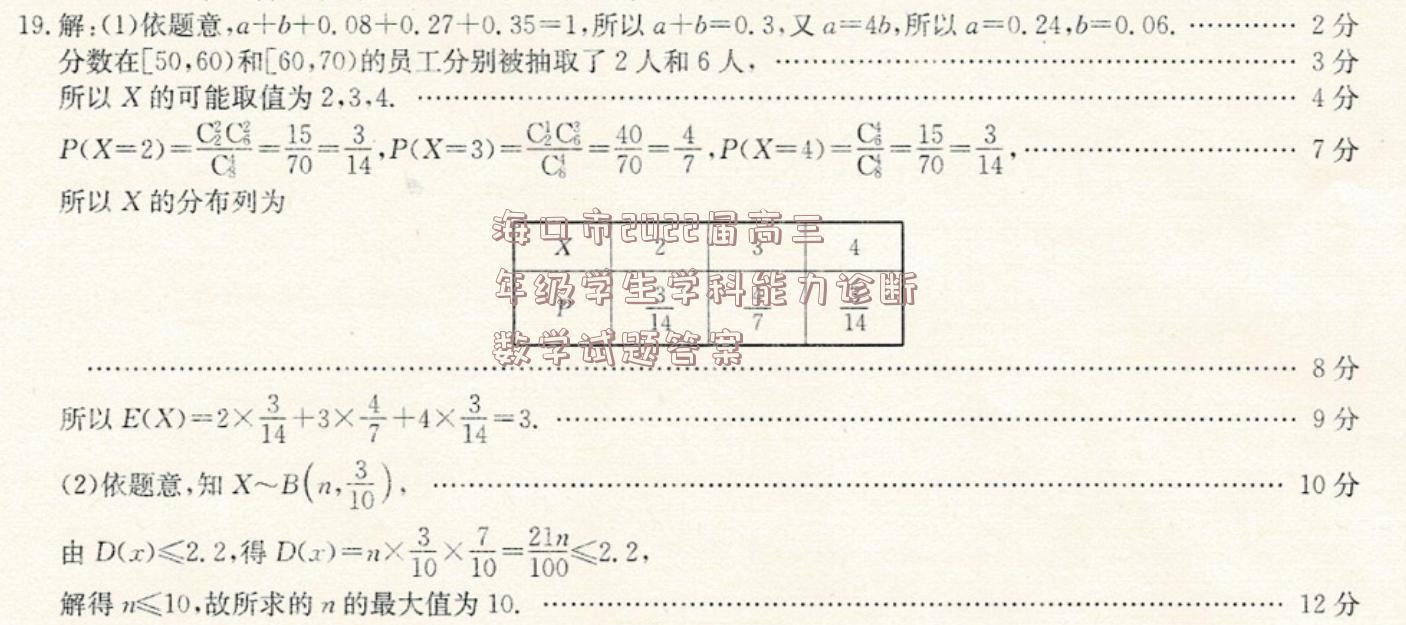 19. 解:(1)依题意,a+b+0.08+0.27+0.35=1,所以 a+b=0.3,又 a=4b,所以 a=0.24,b=0.06. ………… 2 分
分数在[50,60)和[60,70)的员工分别被抽取了 2 人和 6 人, ………… 3 分
所以 X 的可能取值为 2,3,4. ………… 4 分
P(X=2)=C₂²C₆²/C₈⁴=15/70=3/14,P(X=3)=C₂¹C₆³/C₈⁴=40/70=4/7,P(X=4)=C₆⁴/C₈⁴=15/70=3/14, ………… 7 分
所以 X 的分布列为
海口市2022届高三
X 2 3 4
年级学生学科能力诊断
P 3/14 4/7 3/14
数学试题答案
………… 8 分
所以 E(X)=2×3/14+3×4/7+4×3/14=3. ………… 9 分
(2)依题意,知 X~B(n,3/10), ………… 10 分
由 D(x)≤2.2,得 D(x)=n×3/10×7/10=21n/100≤2.2,
解得 n≤10,故所求的 n 的最大值为 10. ………… 12 分